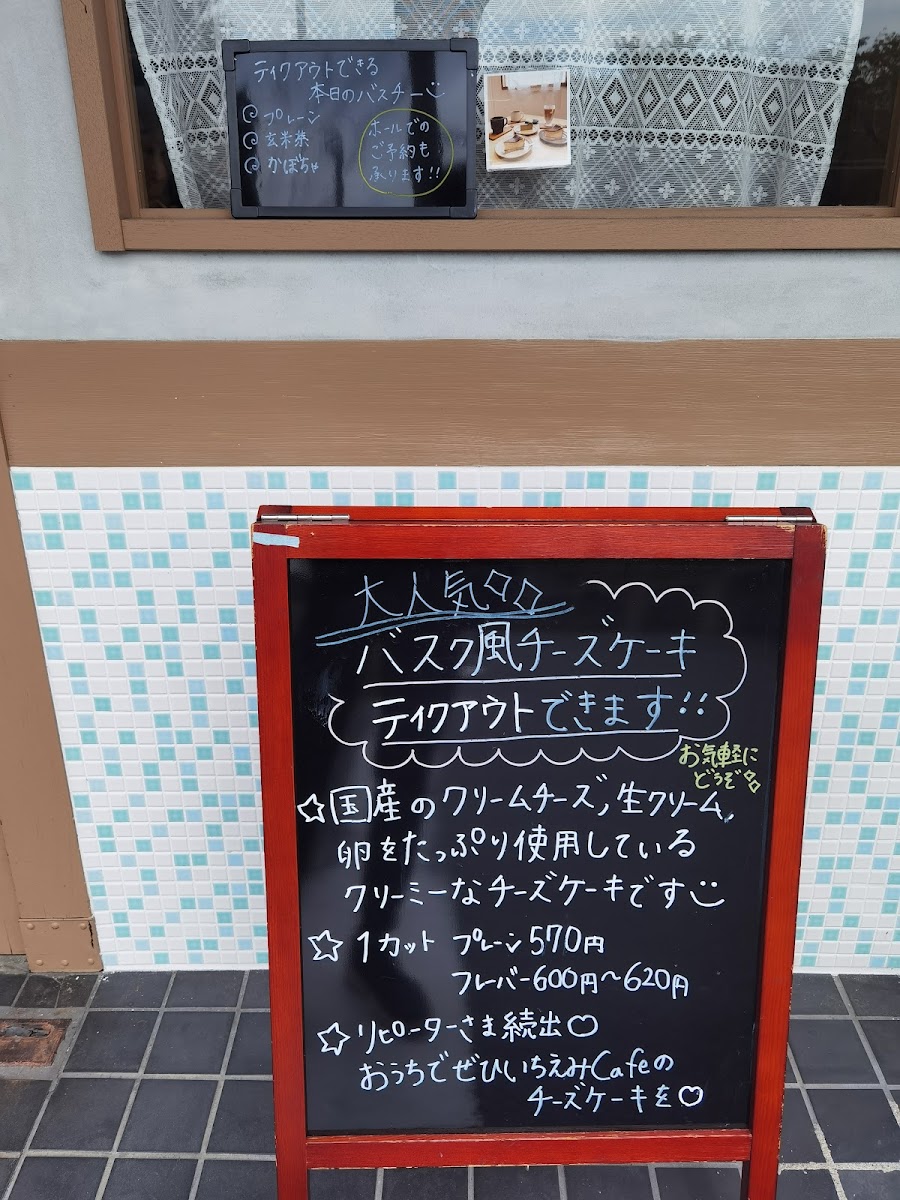 テイクアウトできる
本日のバスチー
プレーン
玄米茶
かぼちゃ
ホールでの
ご予約も
承ります!!
大人気
バスク風チーズケーキ
テイクアウトできます!!
お気軽に
どうぞ
☆国産のクリームチーズ,生クリーム,
卵をたっぷり使用している
クリーミーなチーズケーキです
☆1カット プレーン570円
フレーバー600円〜620円
☆リピーターさま続出♡
おうちでぜひいちえみCafeの
チーズケーキを♡